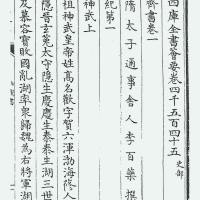 四庫全書薈要卷四千五百四十五 史部
齊書卷一
隋太子通事舍人李百藥撰
紀第一
神武上
祖神武皇帝姓高名歡字賀六渾渤海蓨人
隱晉玄菟太守隱生慶慶生泰泰生湖三世
及慕容寶敗國亂湖率衆歸魏爲右將軍湖